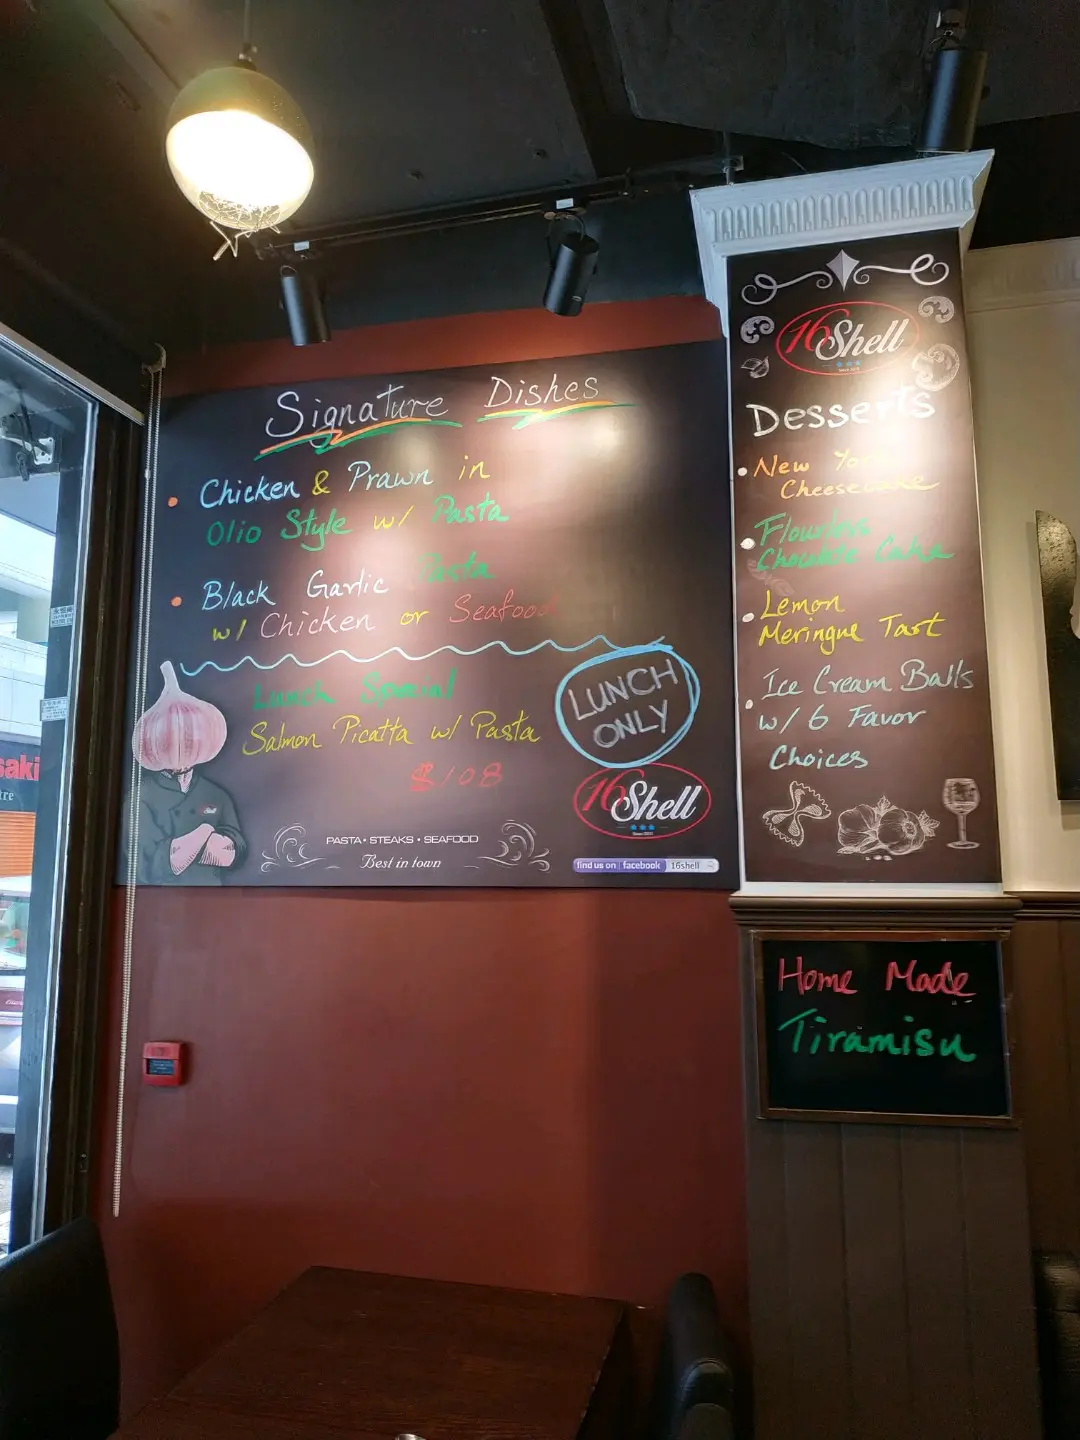 Signature Dishes
Chicken & Prawn in
Olio Style w/ Pasta
Black Garlic Pasta
w/ Chicken or Seafood
Lunch Special
Salmon Picatta w/ Pasta
$108
LUNCH
ONLY
16 Shell
PASTA • STEAKS • SEAFOOD
Best in town
find us on facebook 16shell
16 Shell
Desserts
New York
Cheesecake
Flourless
Chocolate Cake
Lemon
Meringue Tart
Ice Cream Balls
w/ 6 Favor
Choices
Home Made
Tiramisu
saki
tre